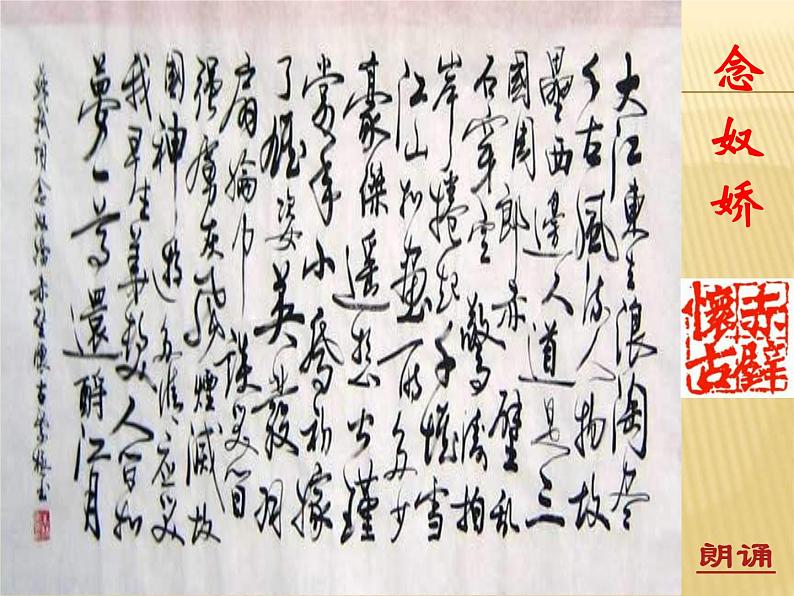 念奴娇
赤壁
懷古
朗诵
大江東去浪淘尽
千古風流人物故
壘西邊人道是三
國周郎赤壁乱
石穿空驚濤拍
岸捲起千堆雪
江山如画一时多少
豪傑遥想公瑾
當年小喬初嫁
了雄姿英發羽
扇綸巾談笑间
强虜灰飛煙滅故
國神遊多情应笑
我早生華髮人间如
夢一尊還酹江月
蘇軾詞念奴嬌赤壁懷古